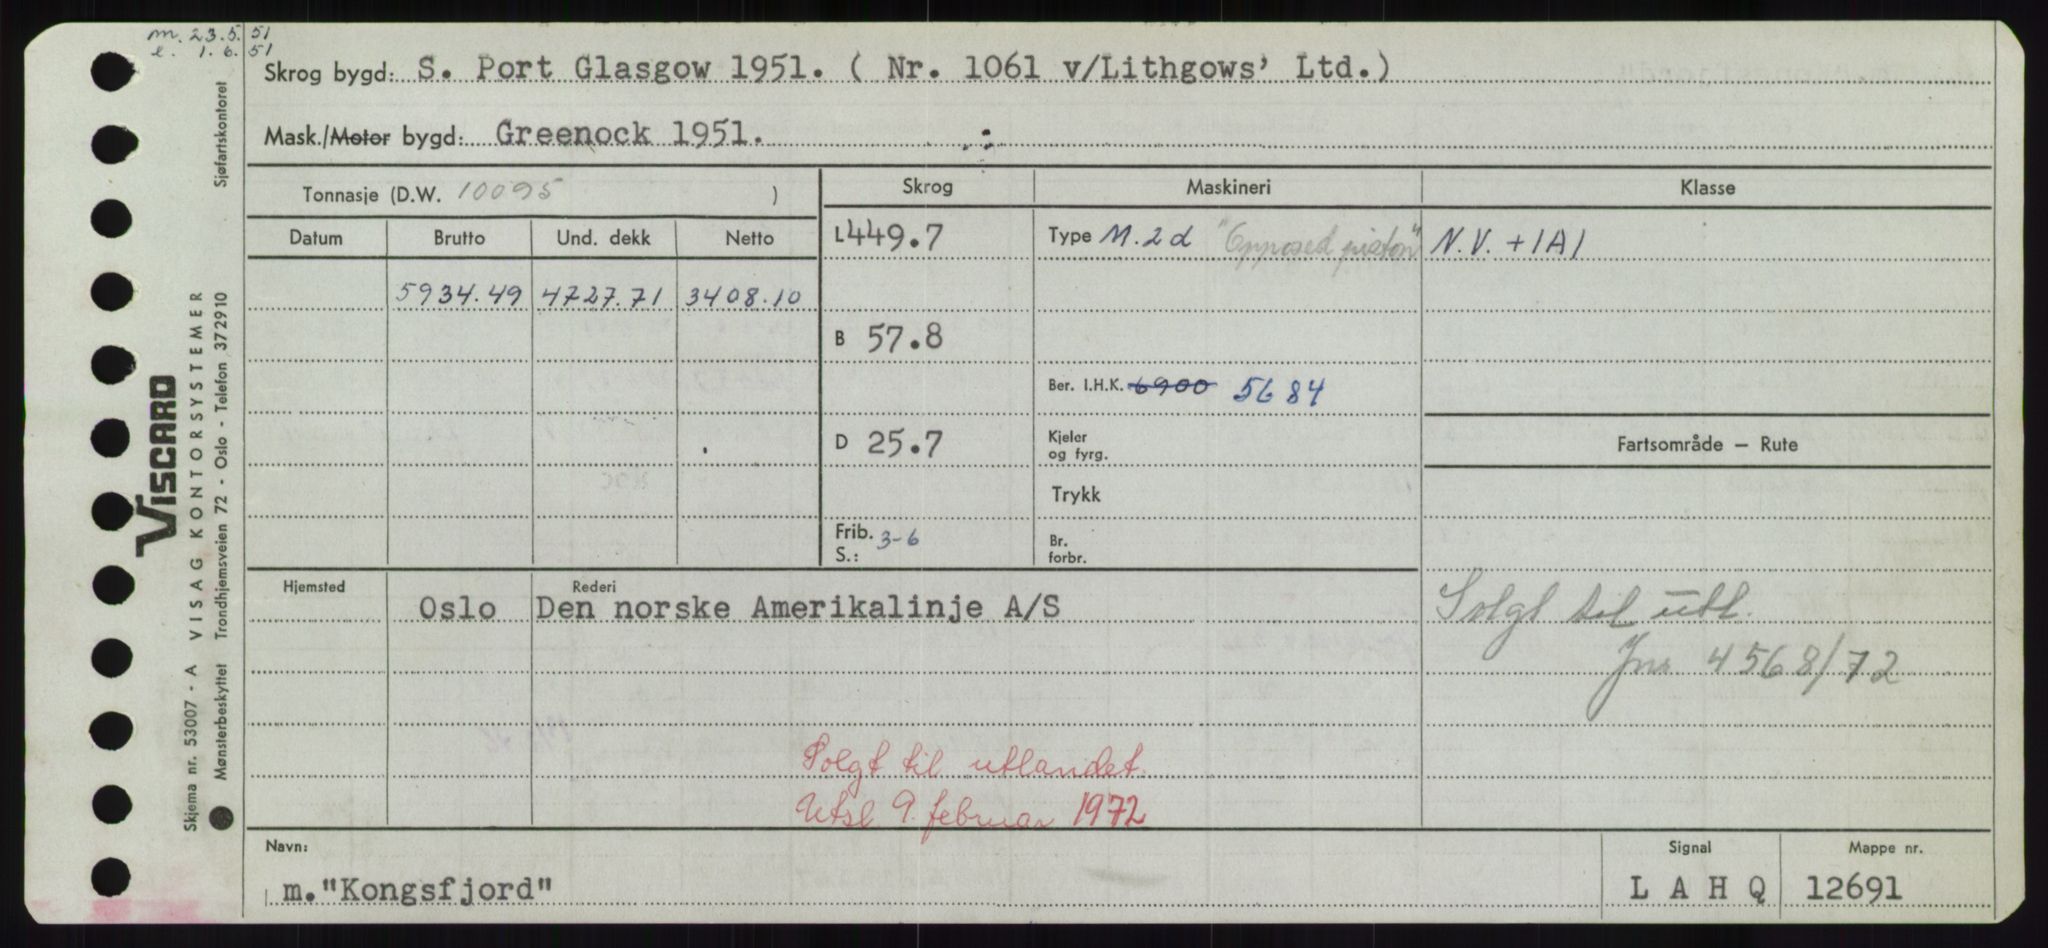 m. 23.5.51
e. 1.6.51
Skrog bygd: S. Port Glasgow 1951. ( Nr. 1061 v/Lithgows' Ltd.)
Mask./Motor bygd: Greenock 1951.
Tonnasje (D.W. 10095 )
Skrog Maskineri Klasse
Datum Brutto Und. dekk Netto
L 449.7 Type M. 2 d "Opposed piston" N.V. +1A1
5934.49 4727.71 3408.10
B 57.8
Ber. I.H.K. 6900 5684
D 25.7 Kjeler og fyrg.
Fartsområde — Rute
Trykk
Frib. S.: 3-6 Br. forbr.
Hjemsted Rederi
Oslo Den norske Amerikalinje A/S
Solgt til utl.
Jnr 4568/72
Solgt til utlandet.
Utsl. 9. februar 1972
Navn: Signal Mappe nr.
m. "Kongsfjord" L A H Q 12691
Skjema nr. 53007 - A VISAG KONTORSYSTEMER
Mønsterbeskyttet Trondhjemsveien 72 - Oslo - Telefon 372910 Sjøfartskontoret
VISCARD